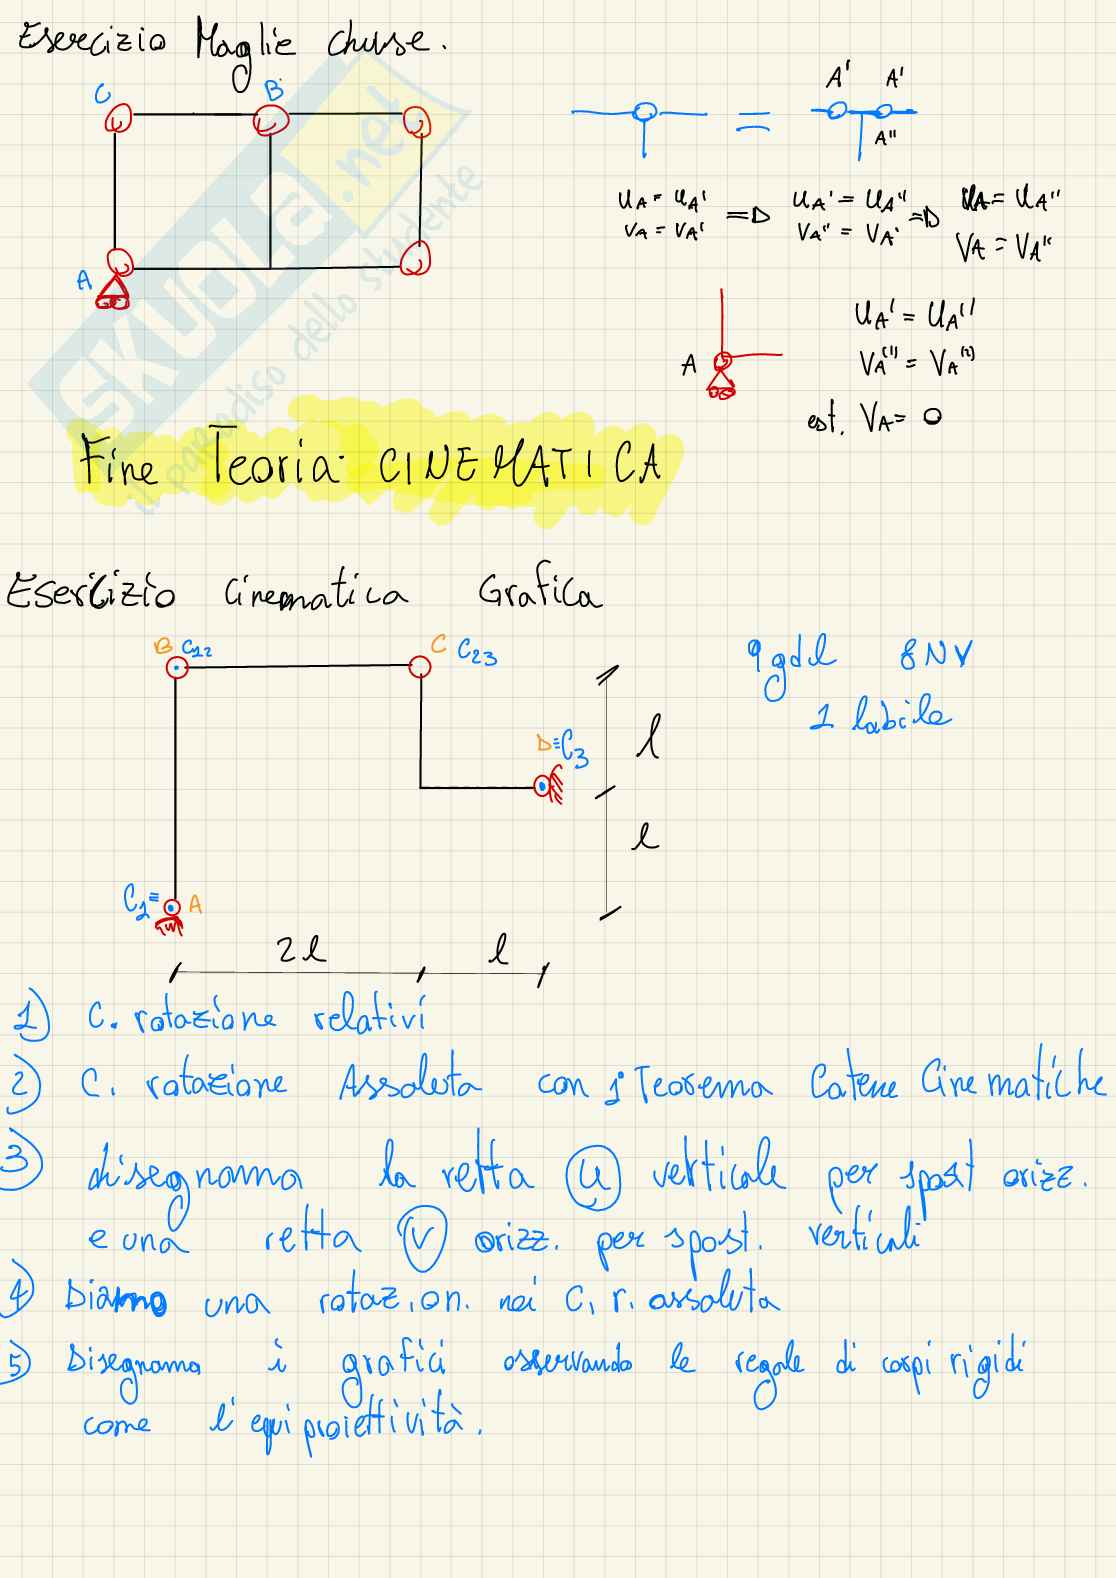 Esercizio Maglie chiuse.
C B
A
A' A'
A''
=
uA = uA' => uA' = uA'' => uA = uA''
vA = vA' vA'' = vA' vA = vA''
A
uA' = uA''
vA(1) = vA(2)
est. vA = 0
SKUOLA.net
il paradiso dello studente
Fine Teoria CINEMATICA
Esercizio Cinematica Grafica
B C12 C C23
9 gdl 8 NV
1 labile
D≡C3
l
l
C1≡ A
2l l
1) C. rotazione relativi
2) C. rotazione Assoluta con 1° Teorema Catene Cinematiche
3) disegnamo la retta u verticale per spost orizz.
e una retta v orizz. per spost. verticali
4) Diamo una rotazion. nei C. r. assoluta
5) Disegnamo i grafici osservando le regole di corpi rigidi
come l'equiproiettività.